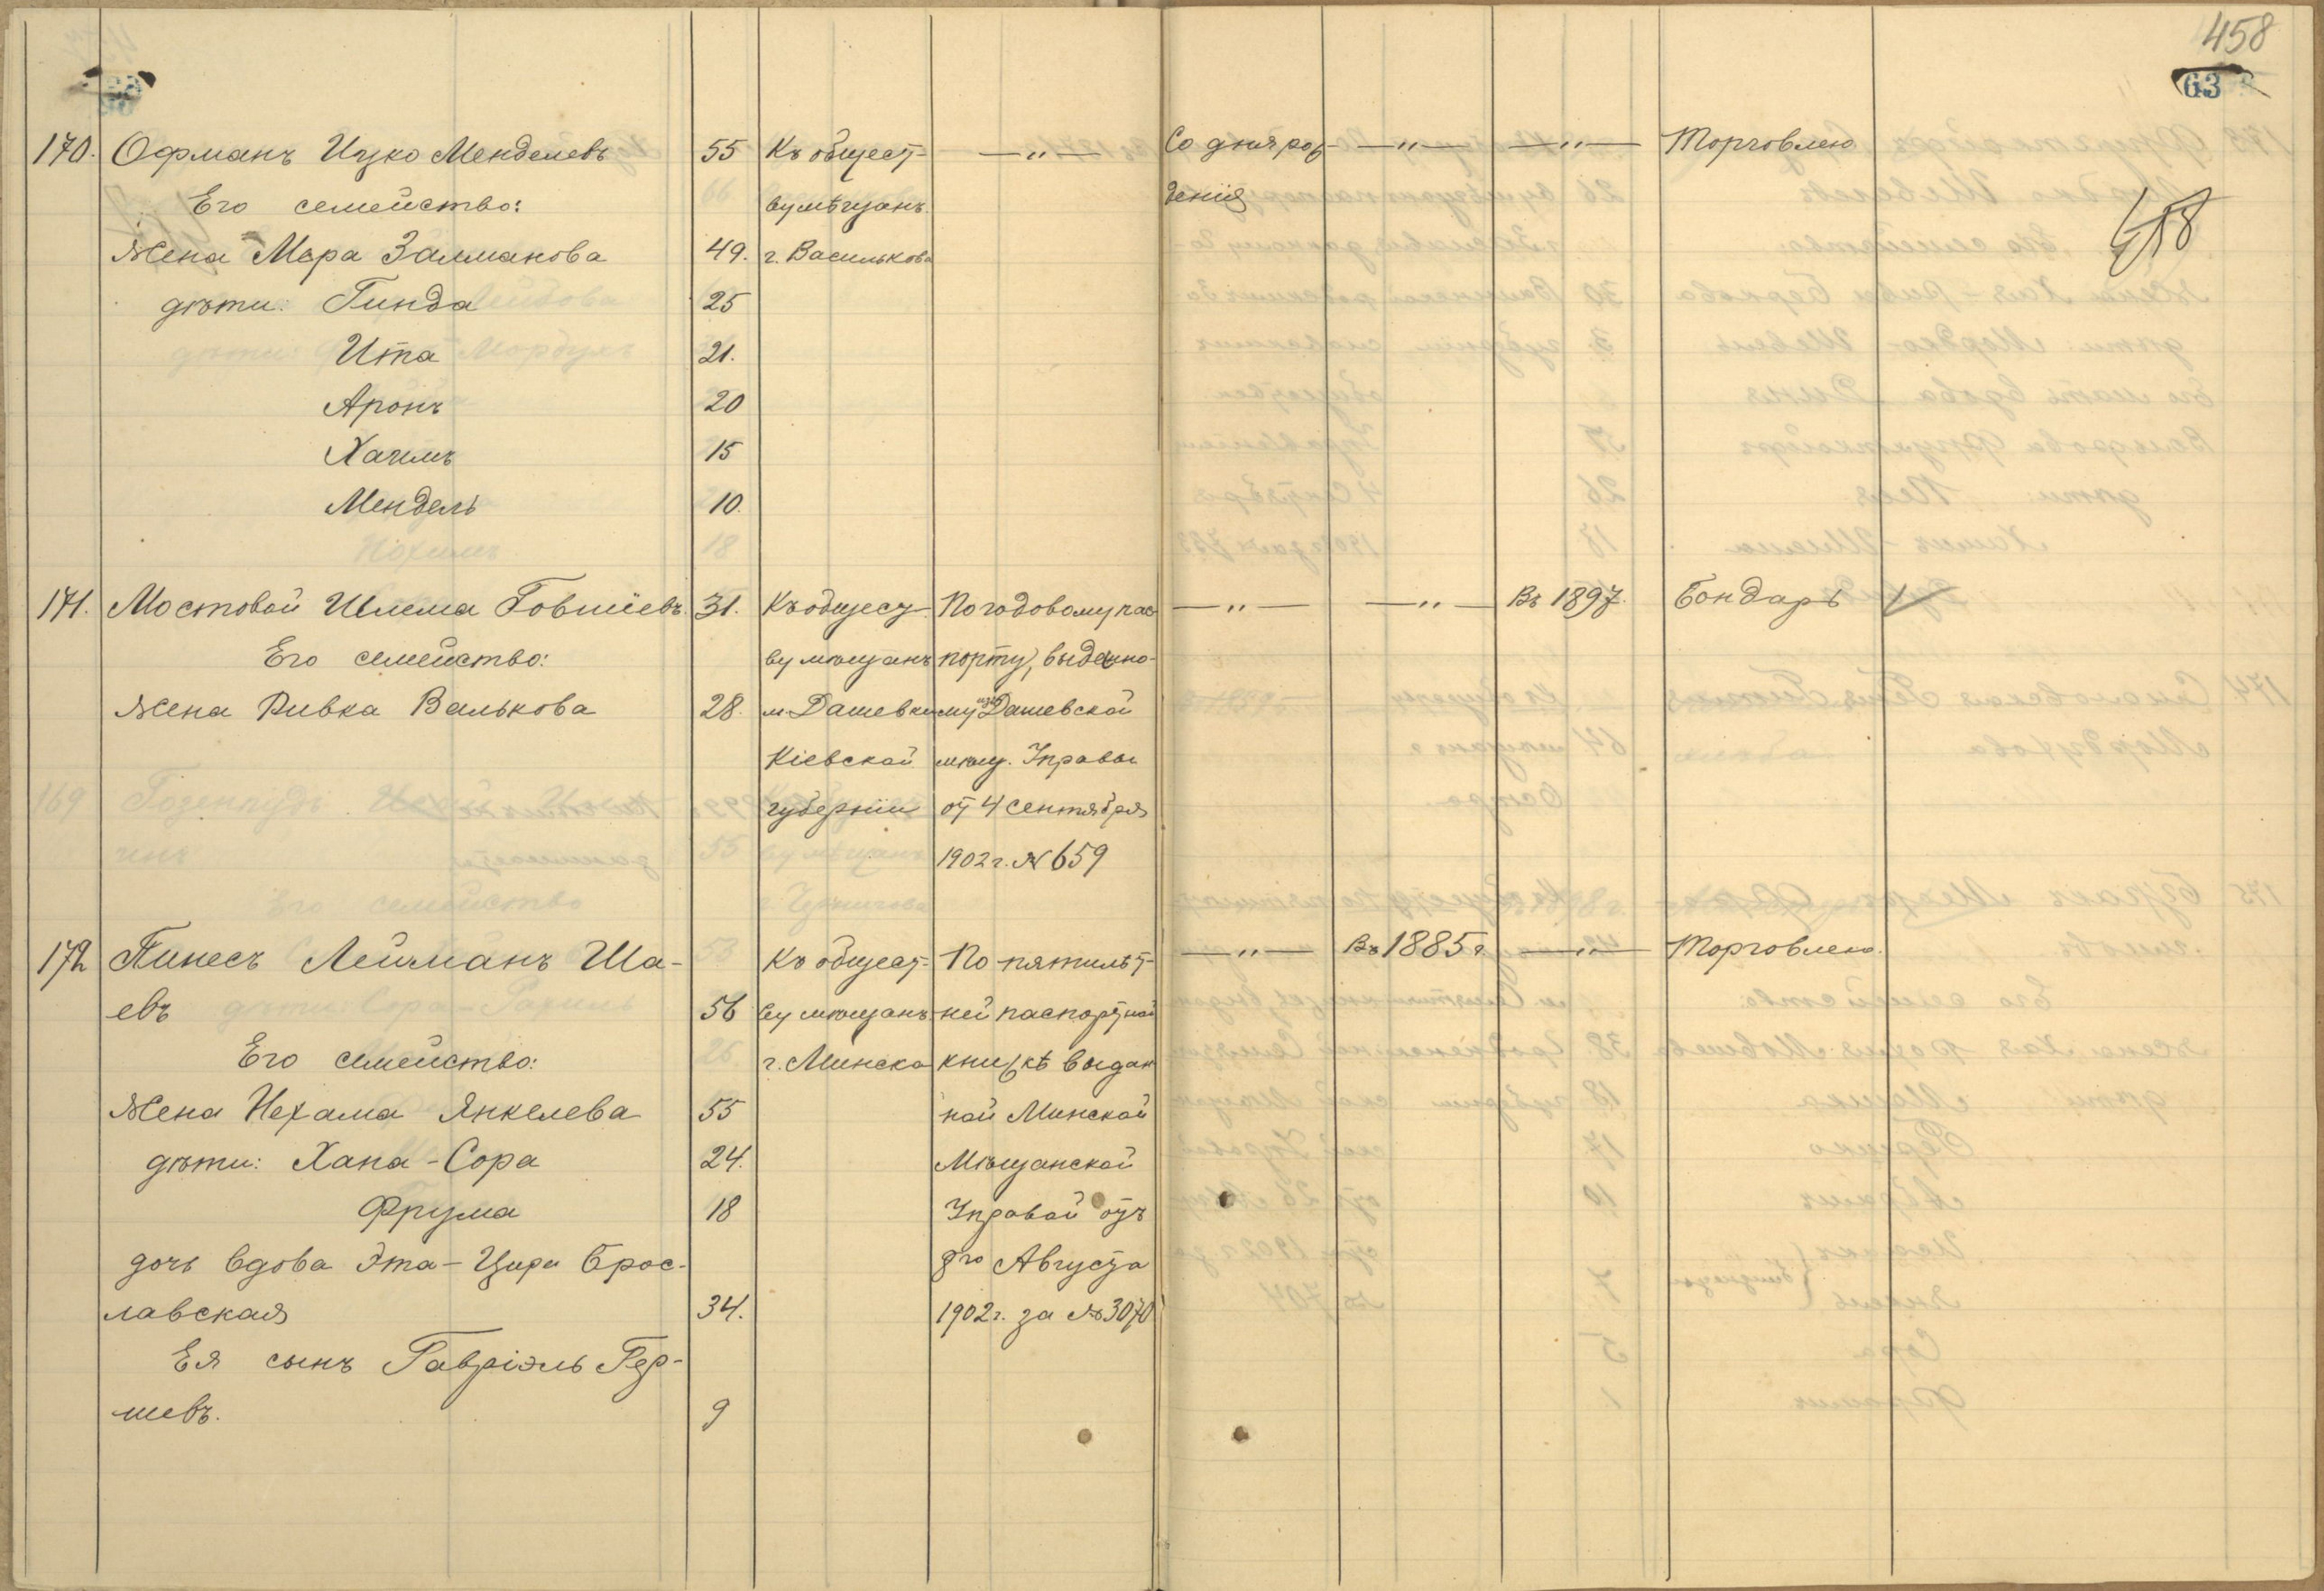 458
63
170. Офманъ Ицко Менделевъ 55 Къ общест- —"— Со дня рож- —"— —"— Торговлею
Его семейство: ву мѣщанъ денія
жена Мера Залманова 49. г. Василькова
458
дѣти: Гинда 25
Ита 21.
Аронъ 20
Хаимъ 15
Мендель 10.
171. Мостовой Шлема Говшіевъ 31. Къ общест- По годовому пас- —"— —"— Въ 1897. Бондарь
Его семейство: ву мѣщанъ порту, выданно-
жена Ривка Валькова 28. м. Дашевки му изъ Дашевской
Кіевской мѣщ. Управы
губерніи от 4 сентября
1902 г. № 659
172 Пинесъ Лейманъ Ша- Къ общест- По пятилѣт- —"— Въ 1885 г. —"— Торговлею.
евъ 56 ву мѣщанъ ней паспортной
Его семейство: г. Минска книжкѣ выдан
жена Нехама Янкелева 55 ной Минской
дѣти: Хана-Сора 24. Мѣщанской
Фрума 18 Управой отъ
дочь вдова Эта-Цира Брас- 8го Августа
лавская 34. 1902 г. за № 3070
Ея сынъ Гавріэль Гер-
шевъ. 9